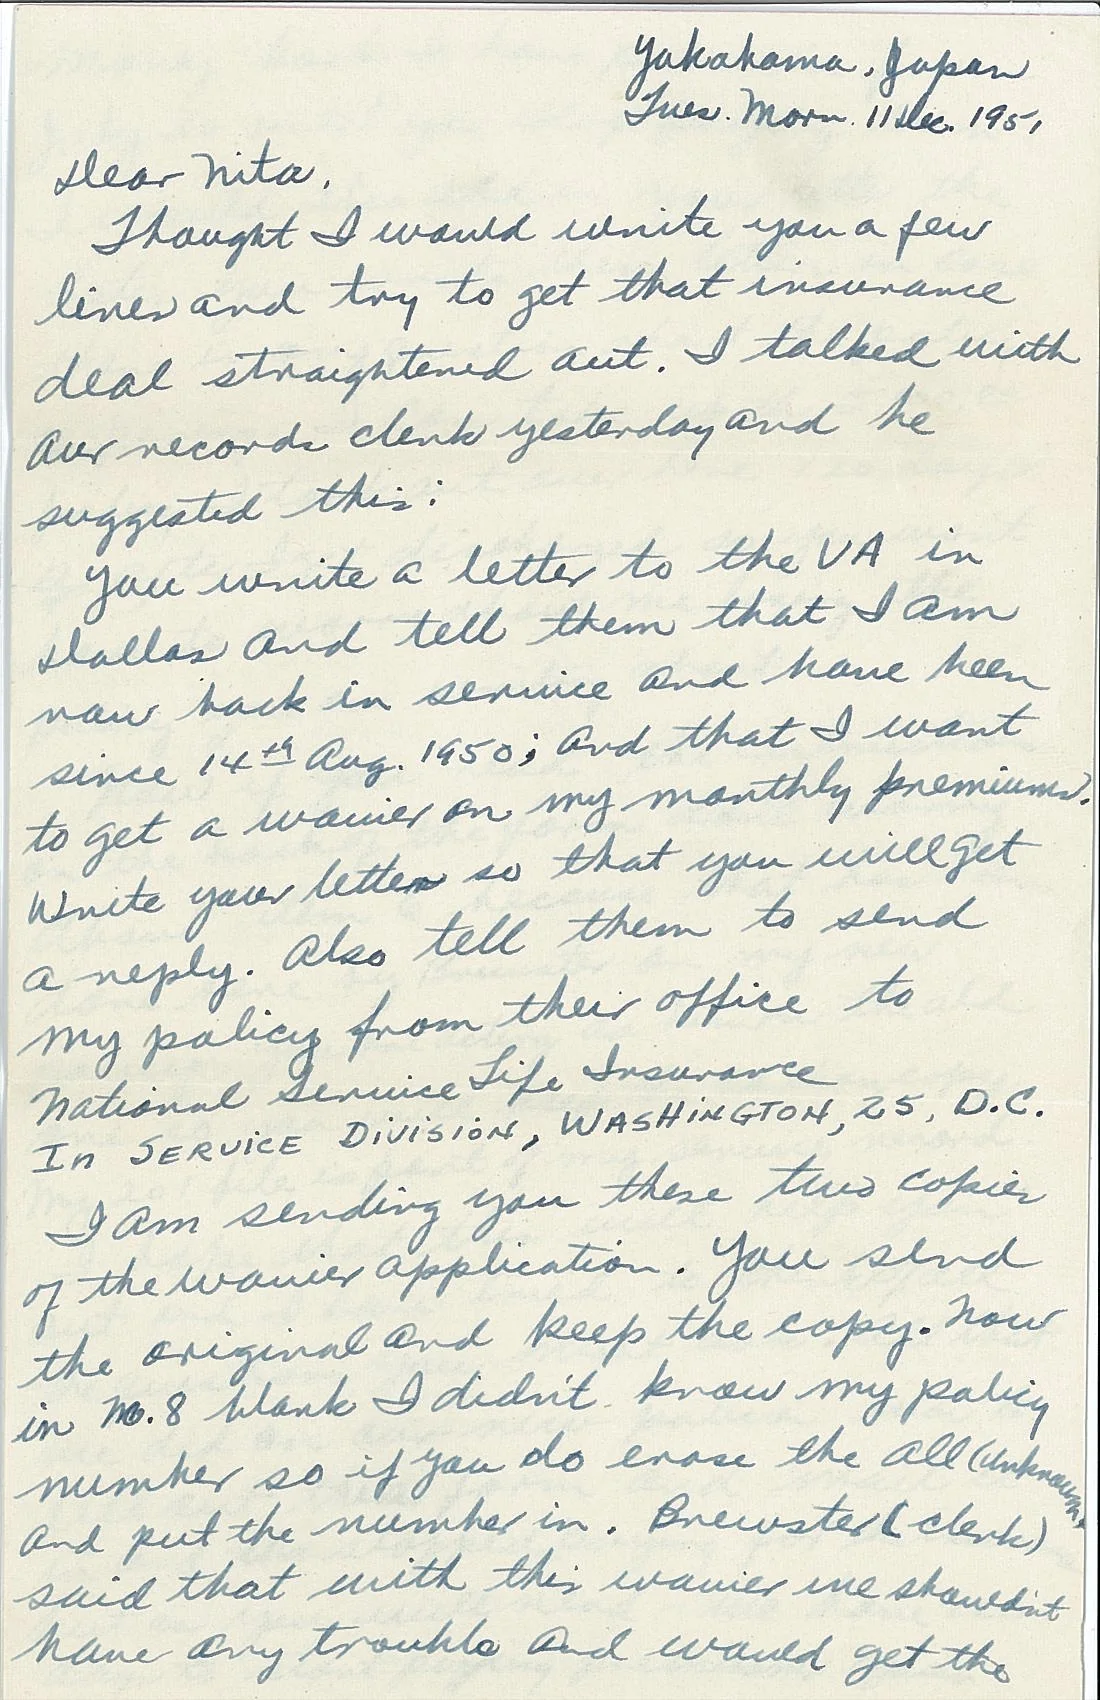 Yokohama, Japan
Tues. Morn. 11 Dec. 1951
Dear Nita,
Thought I would write you a few
lines and try to get that insurance
deal straightened out. I talked with
our records clerk yesterday and he
suggested this:
You write a letter to the VA in
Dallas and tell them that I am
now back in service and have been
since 14th Aug. 1950; and that I want
to get a waiver on my monthly premiums.
Write your letter so that you will get
a reply. Also tell them to send
my policy from their office to
National Service Life Insurance
In SERVICE DIVISION, WASHINGTON, 25, D.C.
I am sending you these two copies
of the waiver application. You send
the original and keep the copy. Now
in No. 8 blank I didn't know my policy
number so if you do erase the all (unknowns)
and put the number in. Brewster (clerk)
said that with this waiver we shouldn't
have any trouble and would get the